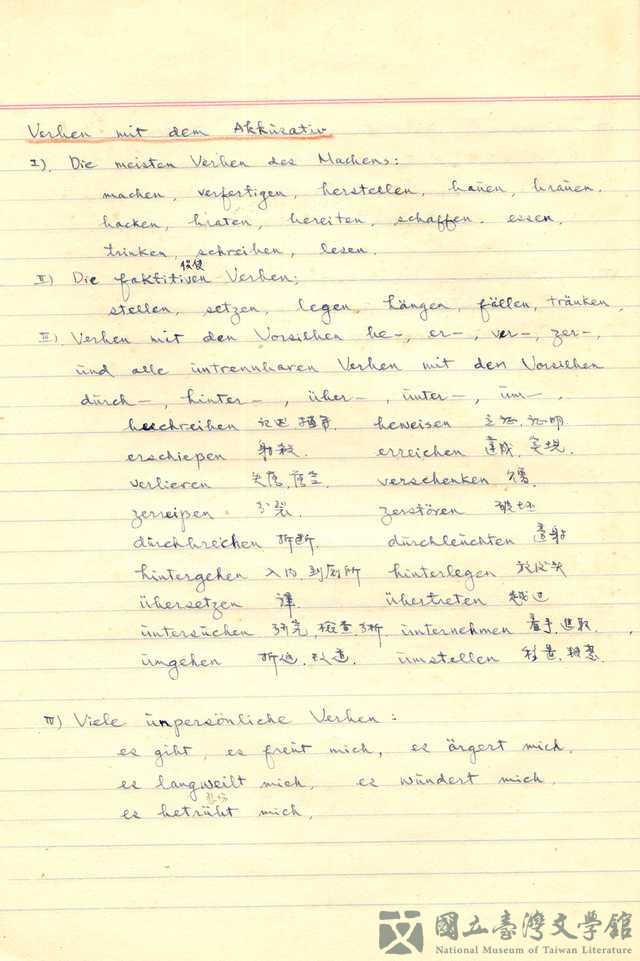 Verben mit dem Akkusativ
I). Die meisten Verben des Machens:
machen, verfertigen, herstellen, bauen, brauen.
backen, braten, bereiten, schaffen. essen,
trinken, schreiben, lesen.
II) Die faktitiven Verben;
stellen, setzen, legen, hängen, fällen, tränken,
III) Verben mit den Vorsilben be-, er-, ver-, zer-,
und alle untrennbaren Verben mit den Vorsilben
durch-, hinter-, über-, unter-, um-.
beschreiben 記述 beweisen 立証, 証明
erschießen 射殺. erreichen 達成, 実現
verlieren verschenken
zerreißen 分裂. zerstören 破坏
durchbrechen 折断. durchleuchten 透射
hintergehen hinterlegen
übersetzen 譯. übertreten 越过
untersuchen 研究, 檢查, 分析 unternehmen 着手, 進取.
umgehen umstellen
IV) Viele unpersönliche Verben:
es gibt, es freut mich, es ärgert mich.
es langweilt mich, es wundert mich.
es betrübt mich,
國立臺灣文學館
National Museum of Taiwan Literature